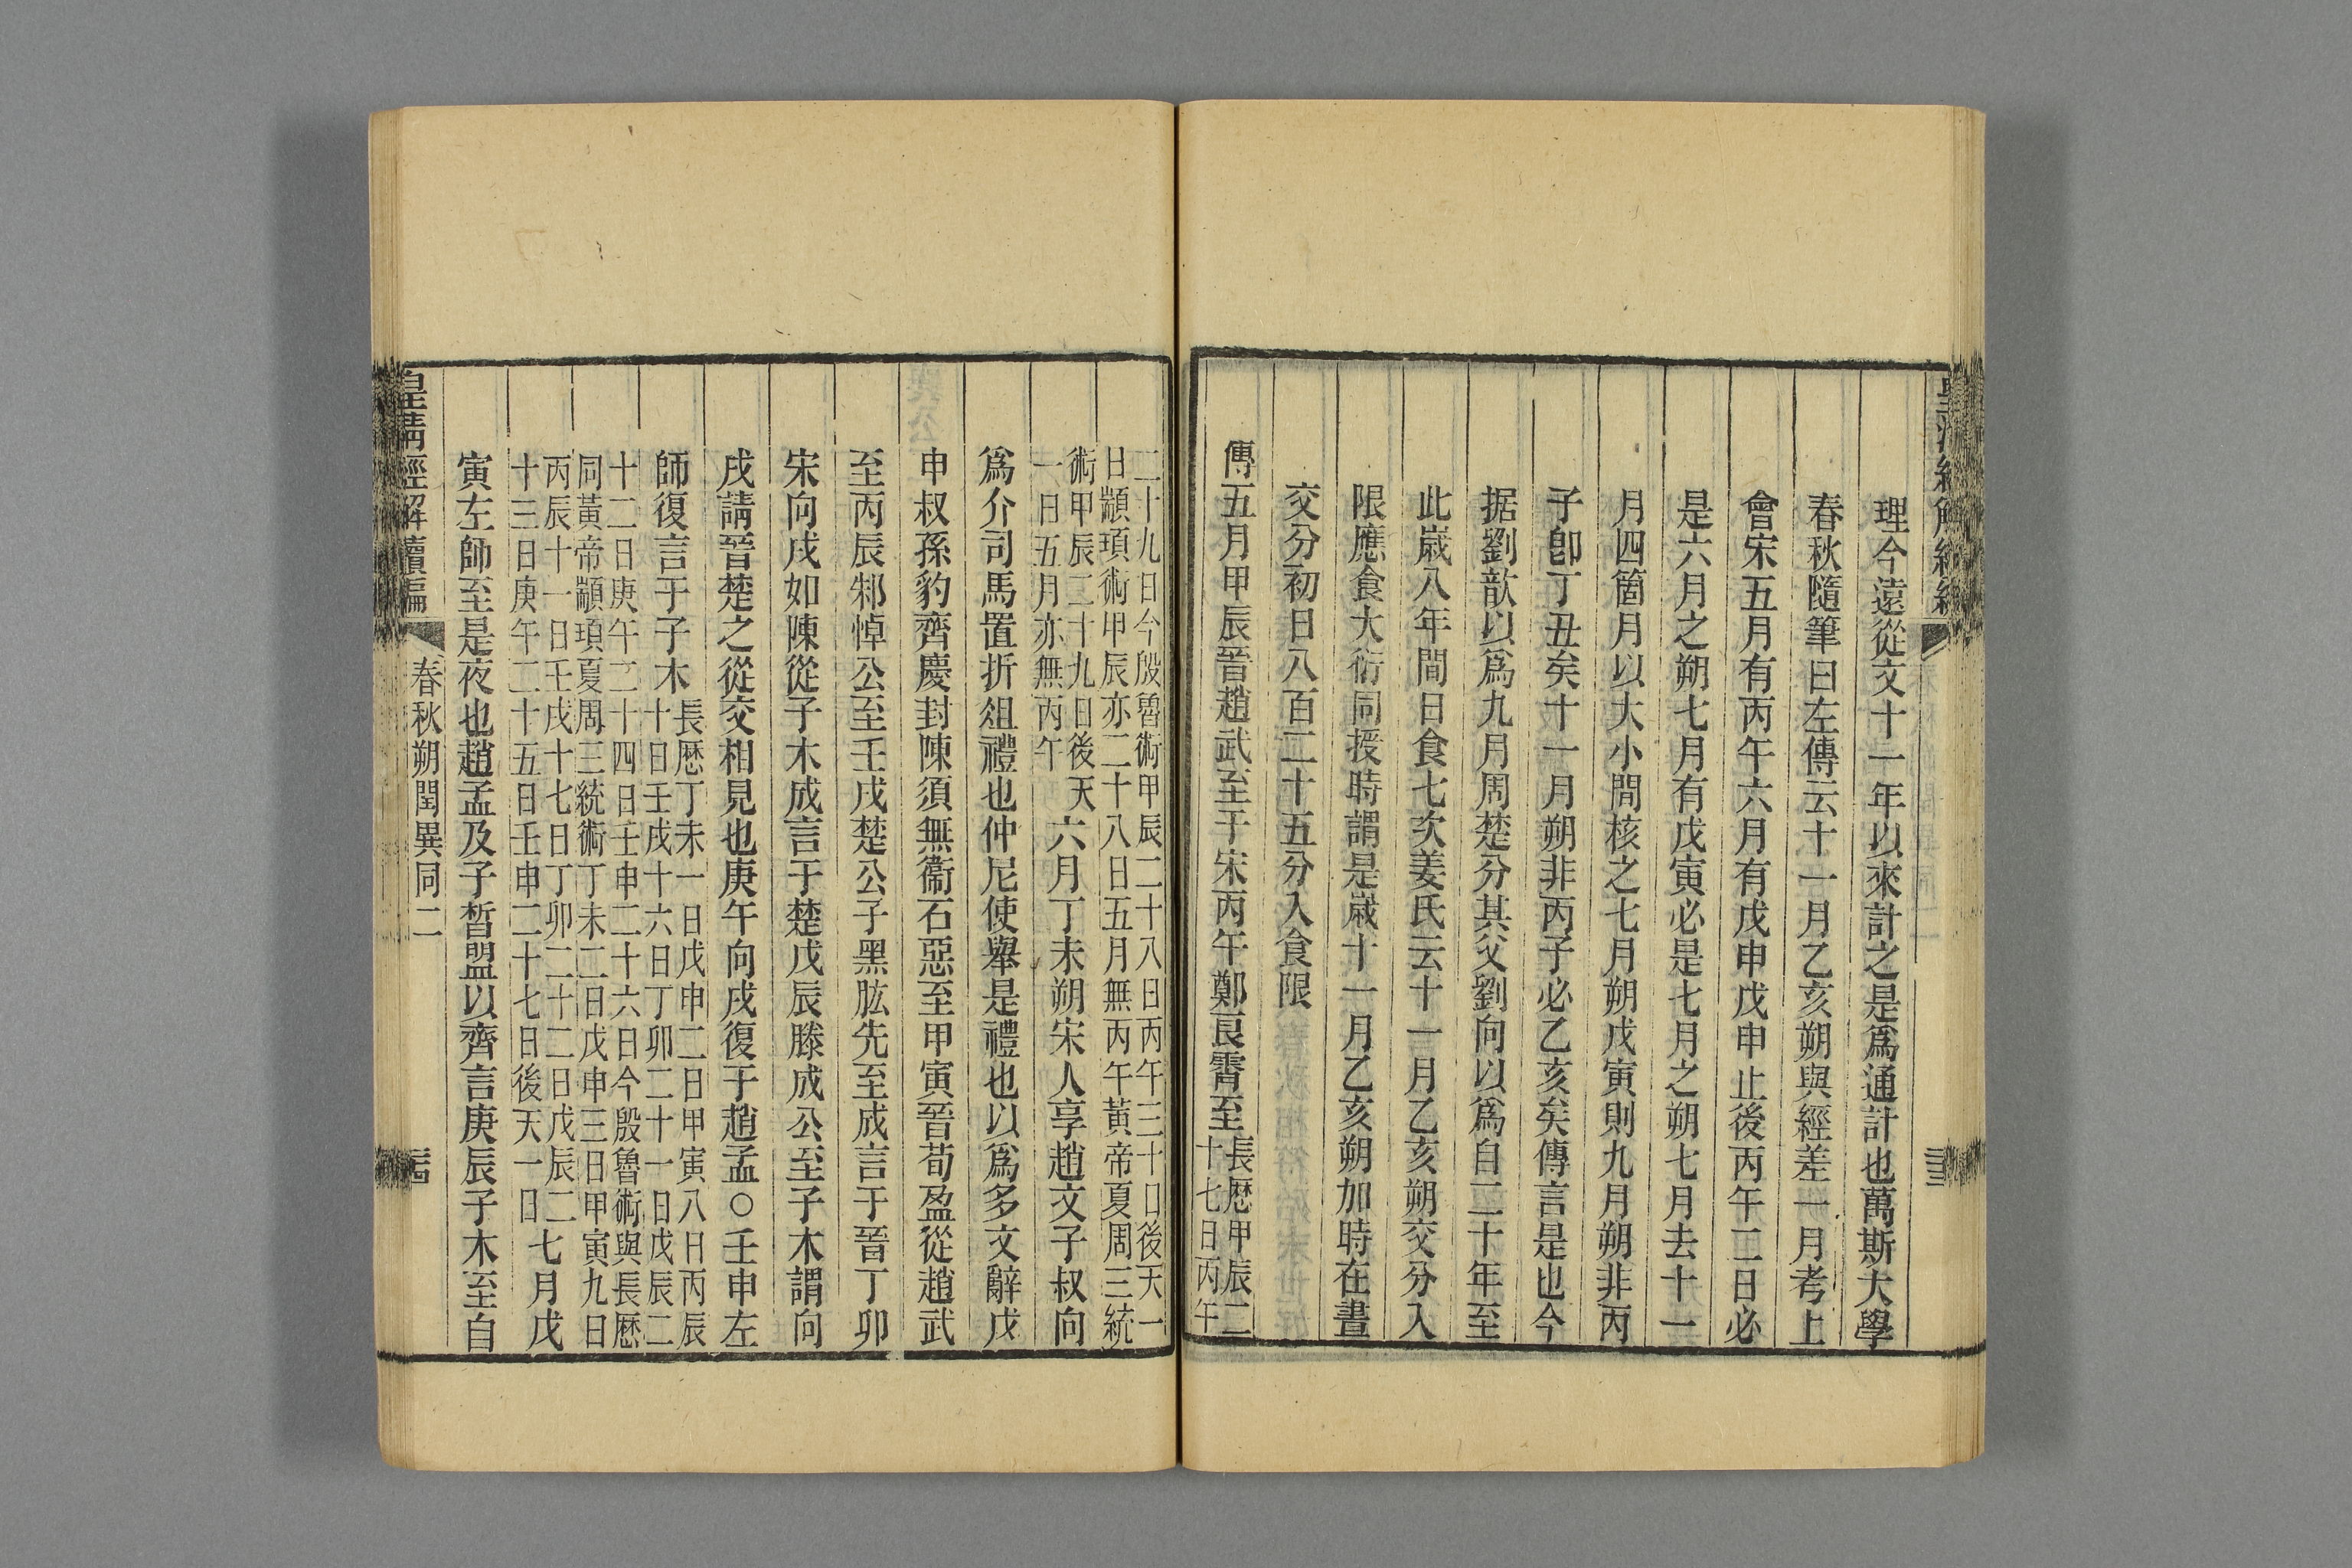 理今遠從文十一年以來計之是爲通計也萬斯大學
春秋隨筆曰左傳云十一月乙亥朔與經差一月考上
會宋五月有丙午六月有戊申戊申止後丙午二日必
是六月之朔七月有戊寅必是七月之朔七月去十一
月四箇月以大小間核之七月朔戊寅則九月朔非丙
子卽丁丑矣十一月朔非丙子必乙亥矣傳言是也今
据劉歆以爲九月周楚分其父劉向以爲自二十年至
此歲八年間日食七次姜氏云十一月乙亥朔交分入
限應食大衍同授時謂是歲十一月乙亥朔加時在晝
交分初日八百二十五分入食限
傳五月甲辰晉趙武至于宋丙午鄭良霄至長歷甲辰二
十七日丙午
二十九日今殷魯術甲辰二十八日丙午三十日後天一
日顓頊術甲辰亦二十八日五月無丙午黃帝夏周三統
術甲辰二十九日後天
一日五月亦無丙午
六月丁未朔宋人享趙文子叔向
爲介司馬置折俎禮也仲尼使舉是禮也以爲多文辭戊
申叔孫豹齊慶封陳須無衞石惡至甲寅晉荀盈從趙武
至丙辰邾悼公至壬戌楚公子黑肱先至成言于晉丁卯
宋向戌如陳從子木成言于楚戊辰滕成公至子木謂向
戌請晉楚之從交相見也庚午向戌復于趙孟○壬申左
師復言于子木
長歷丁未一日戊申二日甲寅八日丙辰
十日壬戌十六日丁卯二十一日戊辰二
十二日庚午二十四日壬申二十六日今殷魯術與長歷
同黃帝顓頊夏周三統術丁未二日戊申三日甲寅九日
丙辰十一日壬戌十七日丁卯二十二日戊辰二
十三日庚午二十五日壬申二十七日後天一日
七月戊
寅左師至是夜也趙孟及子晳盟以齊言庚辰子木至自
皇淸經解續編
春秋朔閏異同二